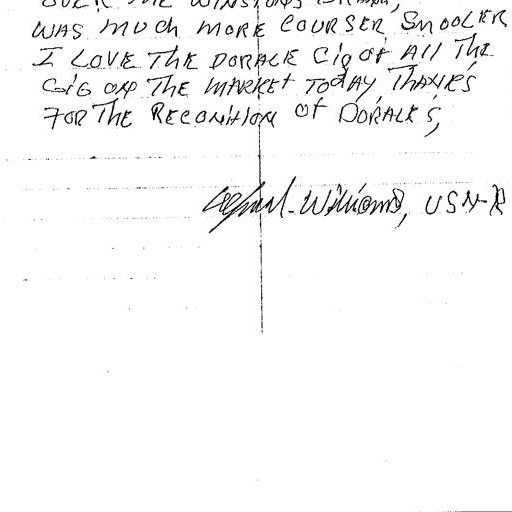 OVER THE WINSTONS BRAND,
WAS MUCH MORE COURSER SMOOLER
I LOVE THE DORALE Cig of All THE
CiG ON THE MARKET TODAY, THANKS
FOR THE RECONITION of DORALES,
Williams, USN-R